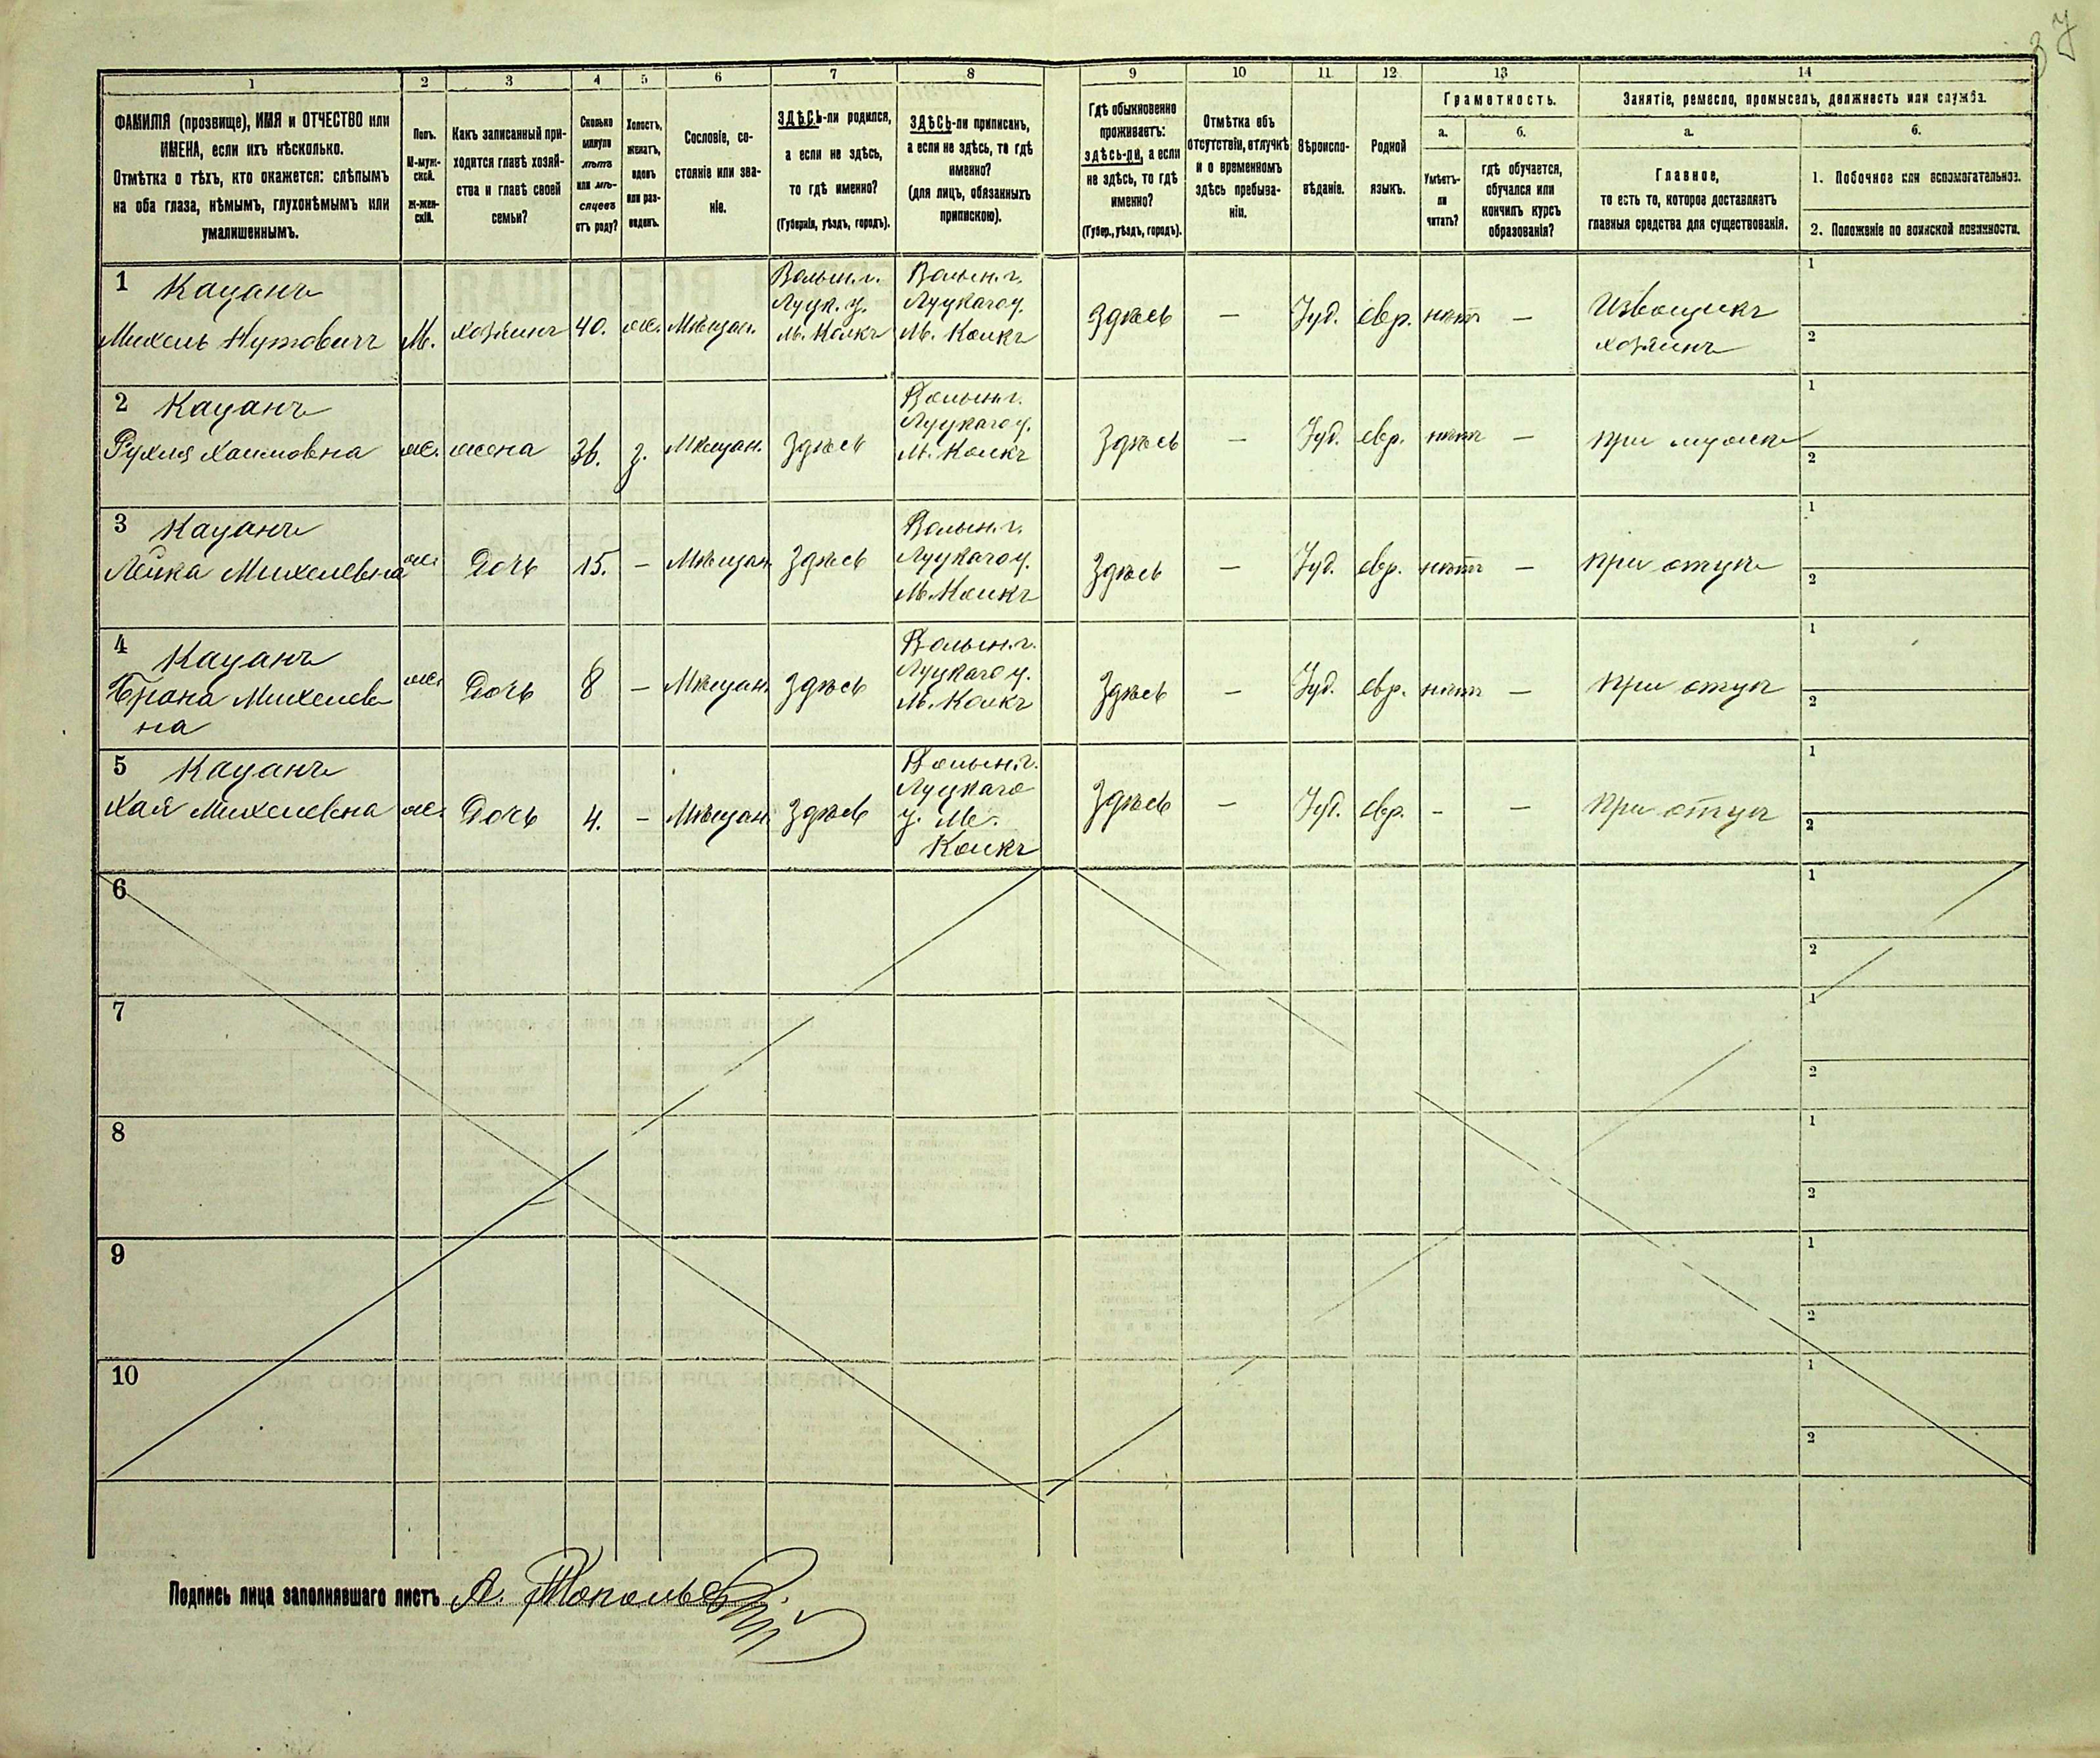 37
1
2
3
4
5
6
7
8
9
10
11
12
13
14
ФАМИЛІЯ (прозвище), ИМЯ и ОТЧЕСТВО или
ИМЕНА, если ихъ нѣсколько.
Отмѣтка о тѣхъ, кто окажется: слѣпымъ
на оба глаза, нѣмымъ, глухонѣмымъ или
умалишеннымъ.
Полъ.
М-муж-
ской.
Ж-жен-
скій.
Какъ записанный при-
ходится главѣ хозяй-
ства и главѣ своей
семьи?
Сколько
минуло
лѣтъ
или мѣ-
сяцевъ
отъ роду?
Холостъ,
женатъ,
вдовъ
или раз-
веденъ.
Сословіе, со-
стояніе или зва-
ніе.
ЗДѢСЬ-ли родился,
а если не здѣсь,
то гдѣ именно?
(Губернія, уѣздъ, городъ).
ЗДѢСЬ-ли приписанъ,
а если не здѣсь, то гдѣ
именно?
(для лицъ, обязанныхъ
припискою).
Гдѣ обыкновенно
проживаетъ:
здѣсь-ли, а если
не здѣсь, то гдѣ
именно?
(Губер., уѣздъ, городъ).
Отмѣтка объ
отсутствіи, отлучкѣ
и о временномъ
здѣсь пребыва-
ніи.
Вѣроиспо-
вѣданіе.
Родной
языкъ.
Грамотность.
а.
Умѣетъ-
ли
читать?
б.
гдѣ обучается,
обучался или
кончилъ курсъ
образованія?
Занятіе, ремесло, промыселъ, должность или служба.
а.
Главное,
то есть то, которое доставляетъ
главныя средства для существованія.
б.
1. Побочное или вспомогательное.
2. Положеніе по воинской повинности.
1 Кацанъ
Михель Нутовичъ
М.
хозяинъ
40.
ж.
Мѣщан.
Волын. г.
Луцк. у.
м. Колкъ
Волын. г.
Луцкаго у.
М. Колкъ
Здѣсь
—
Іуд.
евр.
нѣтъ
—
Извощикъ
хозяинъ
1
2
2 Кацанъ
Рухля Хаимовна
ж.
жена
36.
з.
Мѣщан.
Здѣсь
Волын. г.
Луцкаго у.
М. Колкъ
Здѣсь
—
Іуд.
евр.
нѣтъ
—
при мужѣ
1
2
3 Кацанъ
Лейка Михелевна
ж.
Дочь
15.
—
Мѣщан.
Здѣсь
Волын. г.
Луцкаго у.
М. Колкъ
Здѣсь
—
Іуд.
евр.
нѣтъ
—
при отцѣ
1
2
4 Кацанъ
Брана Михелев
на
ж.
Дочь
8
—
Мѣщан.
Здѣсь
Волын. г.
Луцкаго у.
М. Колкъ
Здѣсь
—
Іуд.
евр.
нѣтъ
—
при отцѣ
1
2
5 Кацанъ
Хая Михелевна
ж.
Дочь
4.
—
Мѣщан.
Здѣсь
Волын. г.
Луцкаго
у. М.
Колкъ
Здѣсь
—
Іуд.
евр.
-
—
при отцѣ
1
2
6
1
2
7
1
2
8
1
2
9
1
2
10
1
2
Подпись лица заполнявшаго листъ А. Топольскій